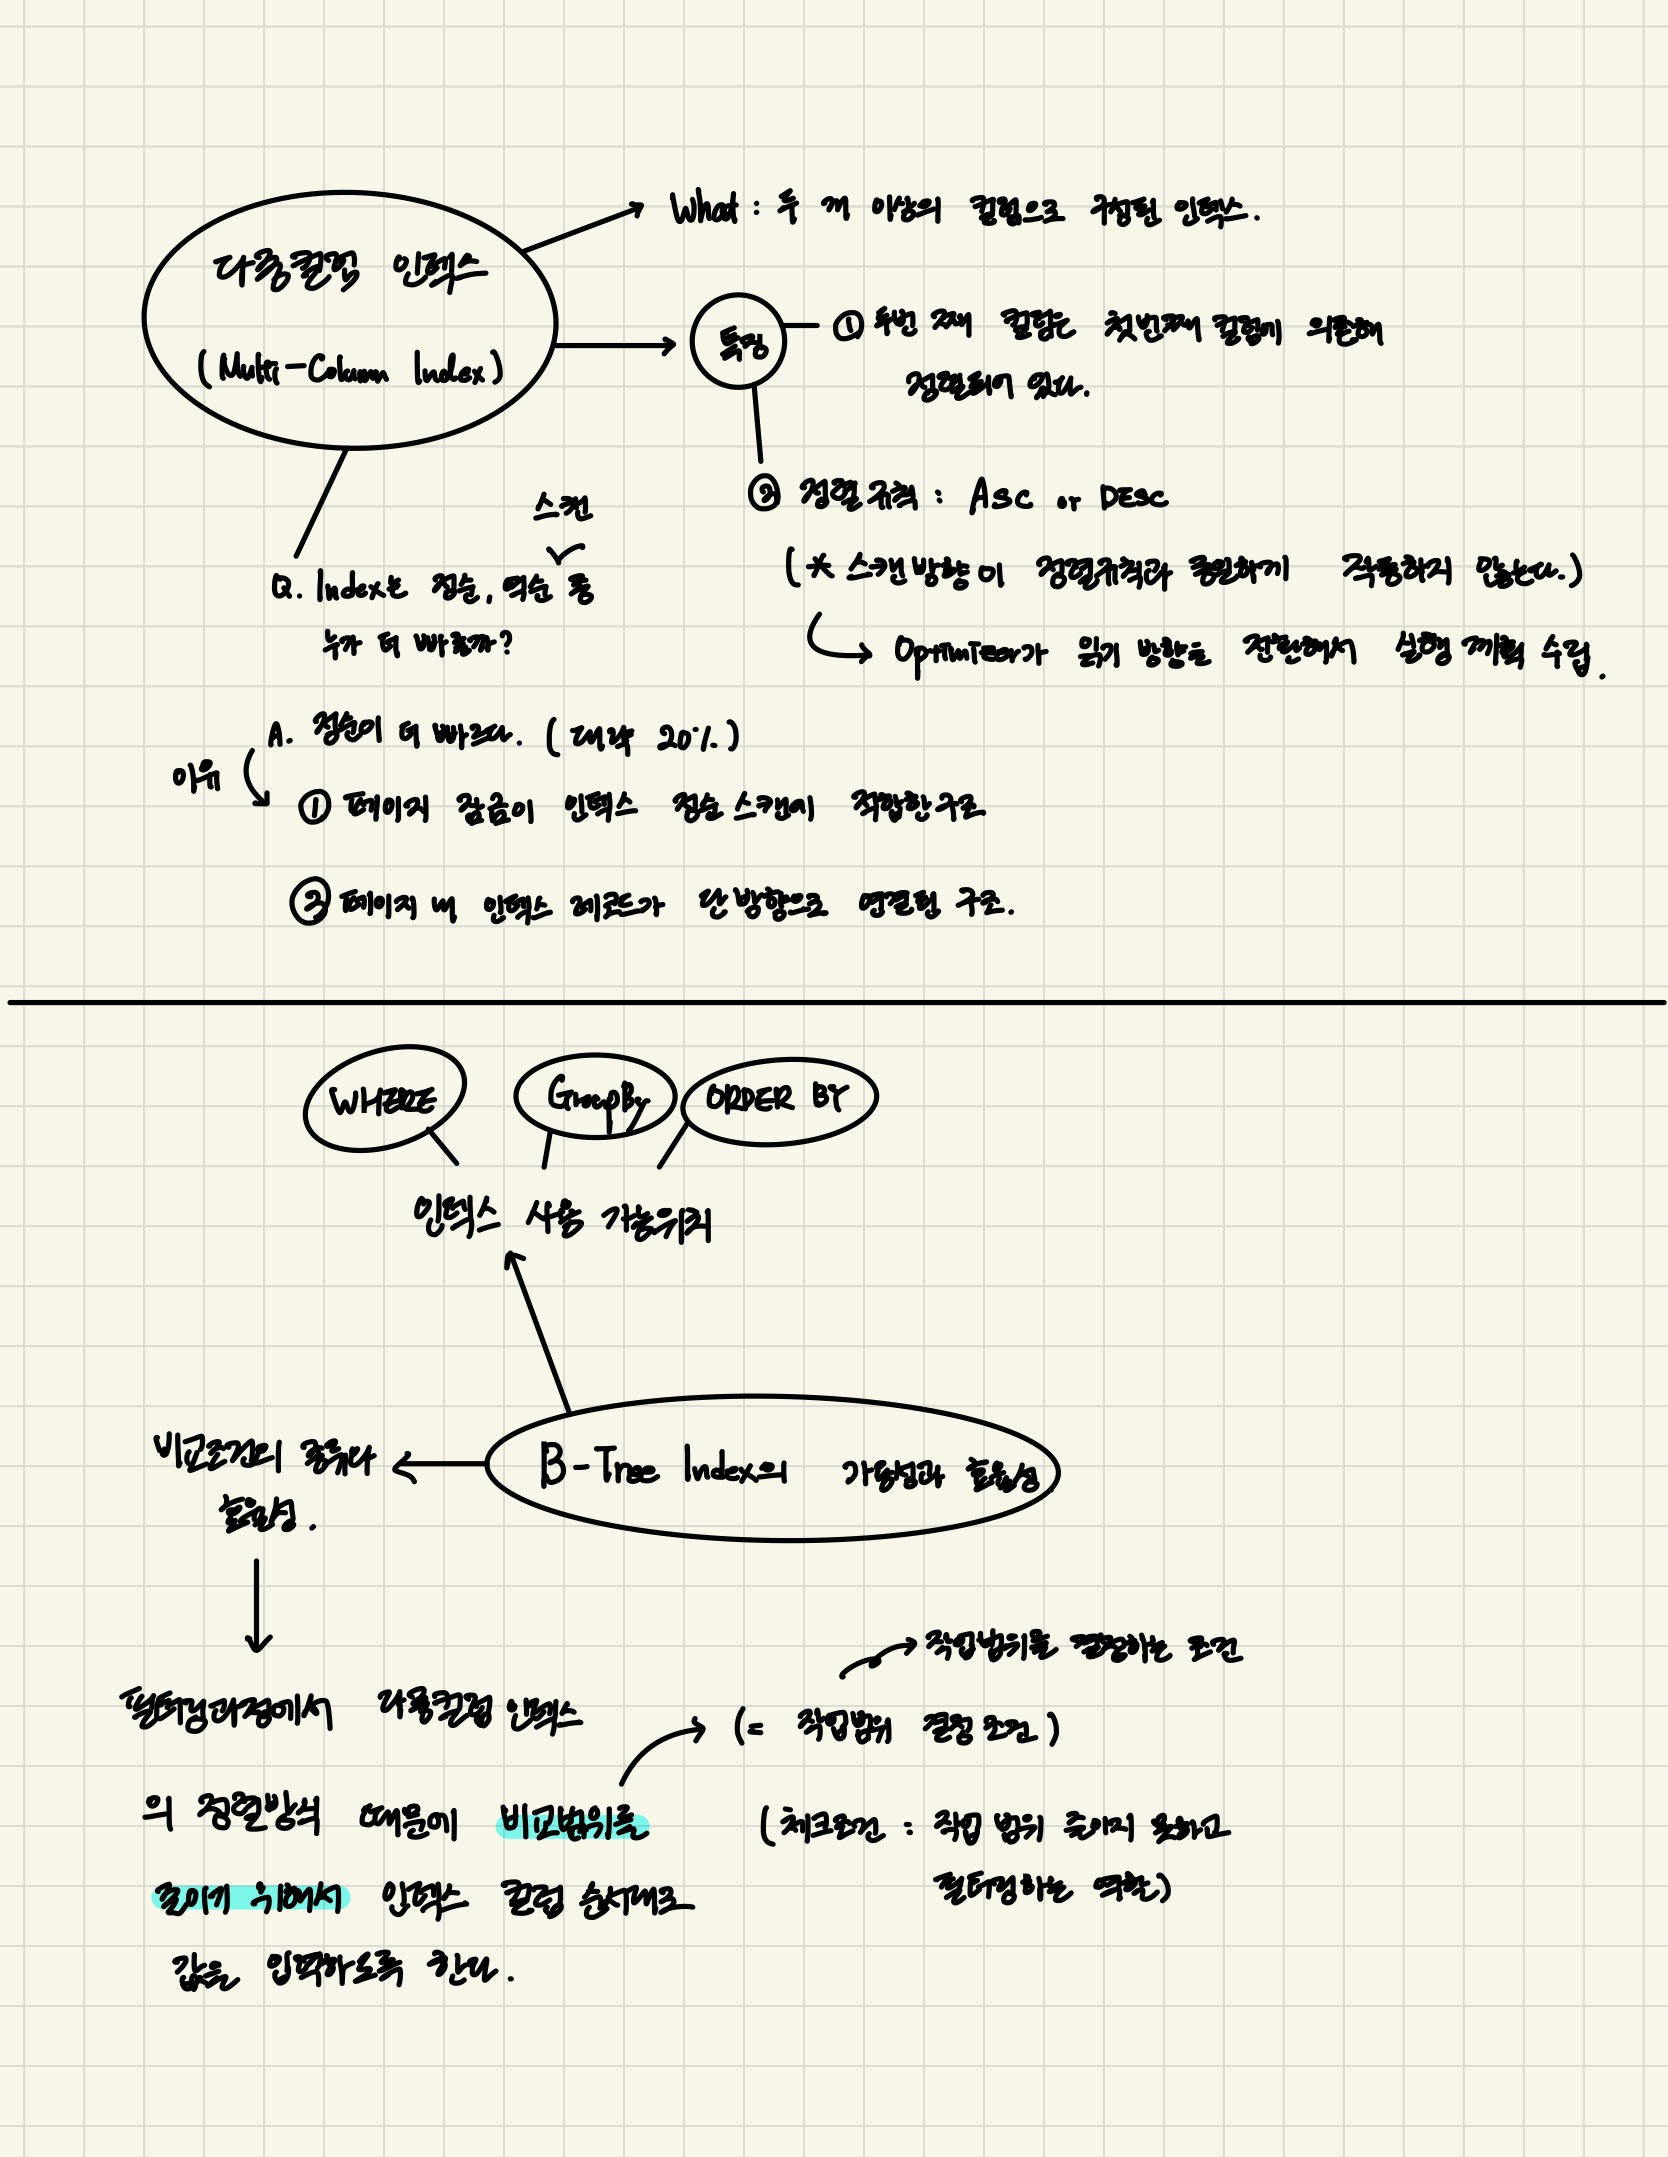 다중컬럼 인덱스
(Multi-Column Index)
What : 두 개 이상의 컬럼으로 구성된 인덱스.
특징
① 두번 째 컬럼은 첫번째 컬럼에 의존해
정렬되어 있다.
② 정렬규칙 : ASC or DESC
(* 스캔방향이 정렬규칙과 동일하게 작동하지 않는다.)
→ 가 읽기 방향을 전환해서 실행 계획 수립.
스캔
Q. Index는 정순, 역순 중
누가 더 빠를까?
A. 정순이 더 빠르다. (대략 20%)
이유
① 페이지 잠금이 인덱스 정순스캔에 적합한구조
② 페이지 내 인덱스 레코드가 단방향으로 연결된 구조.
WHERE
GroupBy
ORDER BY
인덱스 사용 가능위치
B-Tree Index의 가용성과 효율성
비교조건의 종류와
효율성.
필터링과정에서 다중컬럼 인덱스
의 정렬방식 때문에 비교범위를
줄이기 위해서 인덱스 컬럼 순서대로
값을 입력하도록 한다.
작업범위를 결정하는 조건
(= 작업범위 결정조건)
(체크조건 : 작업 범위 줄이지 못하고
필터링하는 역할)